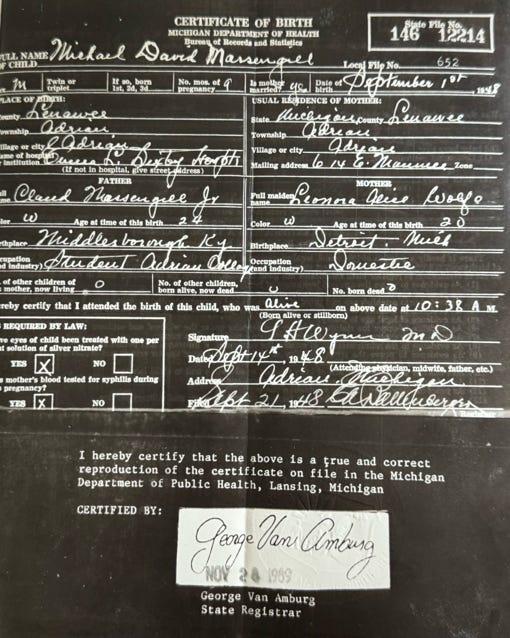 CERTIFICATE OF BIRTH
MICHIGAN DEPARTMENT OF HEALTH
Bureau of Records and Statistics
State File No.
146 12214
FULL NAME OF CHILD Michael David Massengill
Local File No. 652
M Twin or triplet If so, born 1st, 2d, 3d No. mos. of pregnancy 9 Is mother married? yes Date of birth September 1st 1948
PLACE OF BIRTH: USUAL RESIDENCE OF MOTHER:
County Lenawee State Michigan County Lenawee
Township Adrian Township Adrian
Village or city Adrian Village or city Adrian
Name of hospital or institution Emma L. Bixby Mailing address 614 E. Maumee Zone
(If not in hospital, give street address)
FATHER MOTHER
Full name Claud Massengill Jr Full maiden name Leonora Wolfe
Color W Age at time of this birth 24 Color W Age at time of this birth 20
Birthplace Middlesborough Ky Birthplace Detroit - Mich
Occupation (and industry) Student Adrian College Occupation (and industry) Domestic
No. of other children of this mother, now living 0 No. of other children, born alive, now dead 0 No. born dead 0
hereby certify that I attended the birth of this child, who was Alive on above date at 10:38 A M.
(Born alive or stillborn)
REQUIRED BY LAW:
eyes of child been treated with one per
nt solution of silver nitrate?
YES X NO
s mother's blood tested for syphilis during
pregnancy?
YES X NO
Signature MD
Dated Sept 14th 1948
(Attending physician, midwife, father, etc.)
Address Adrian, Michigan
Filed Sept 21, 1948
I hereby certify that the above is a true and correct
reproduction of the certificate on file in the Michigan
Department of Public Health, Lansing, Michigan
CERTIFIED BY:
George Van Amburg
NOV 28 1989
George Van Amburg
State Registrar